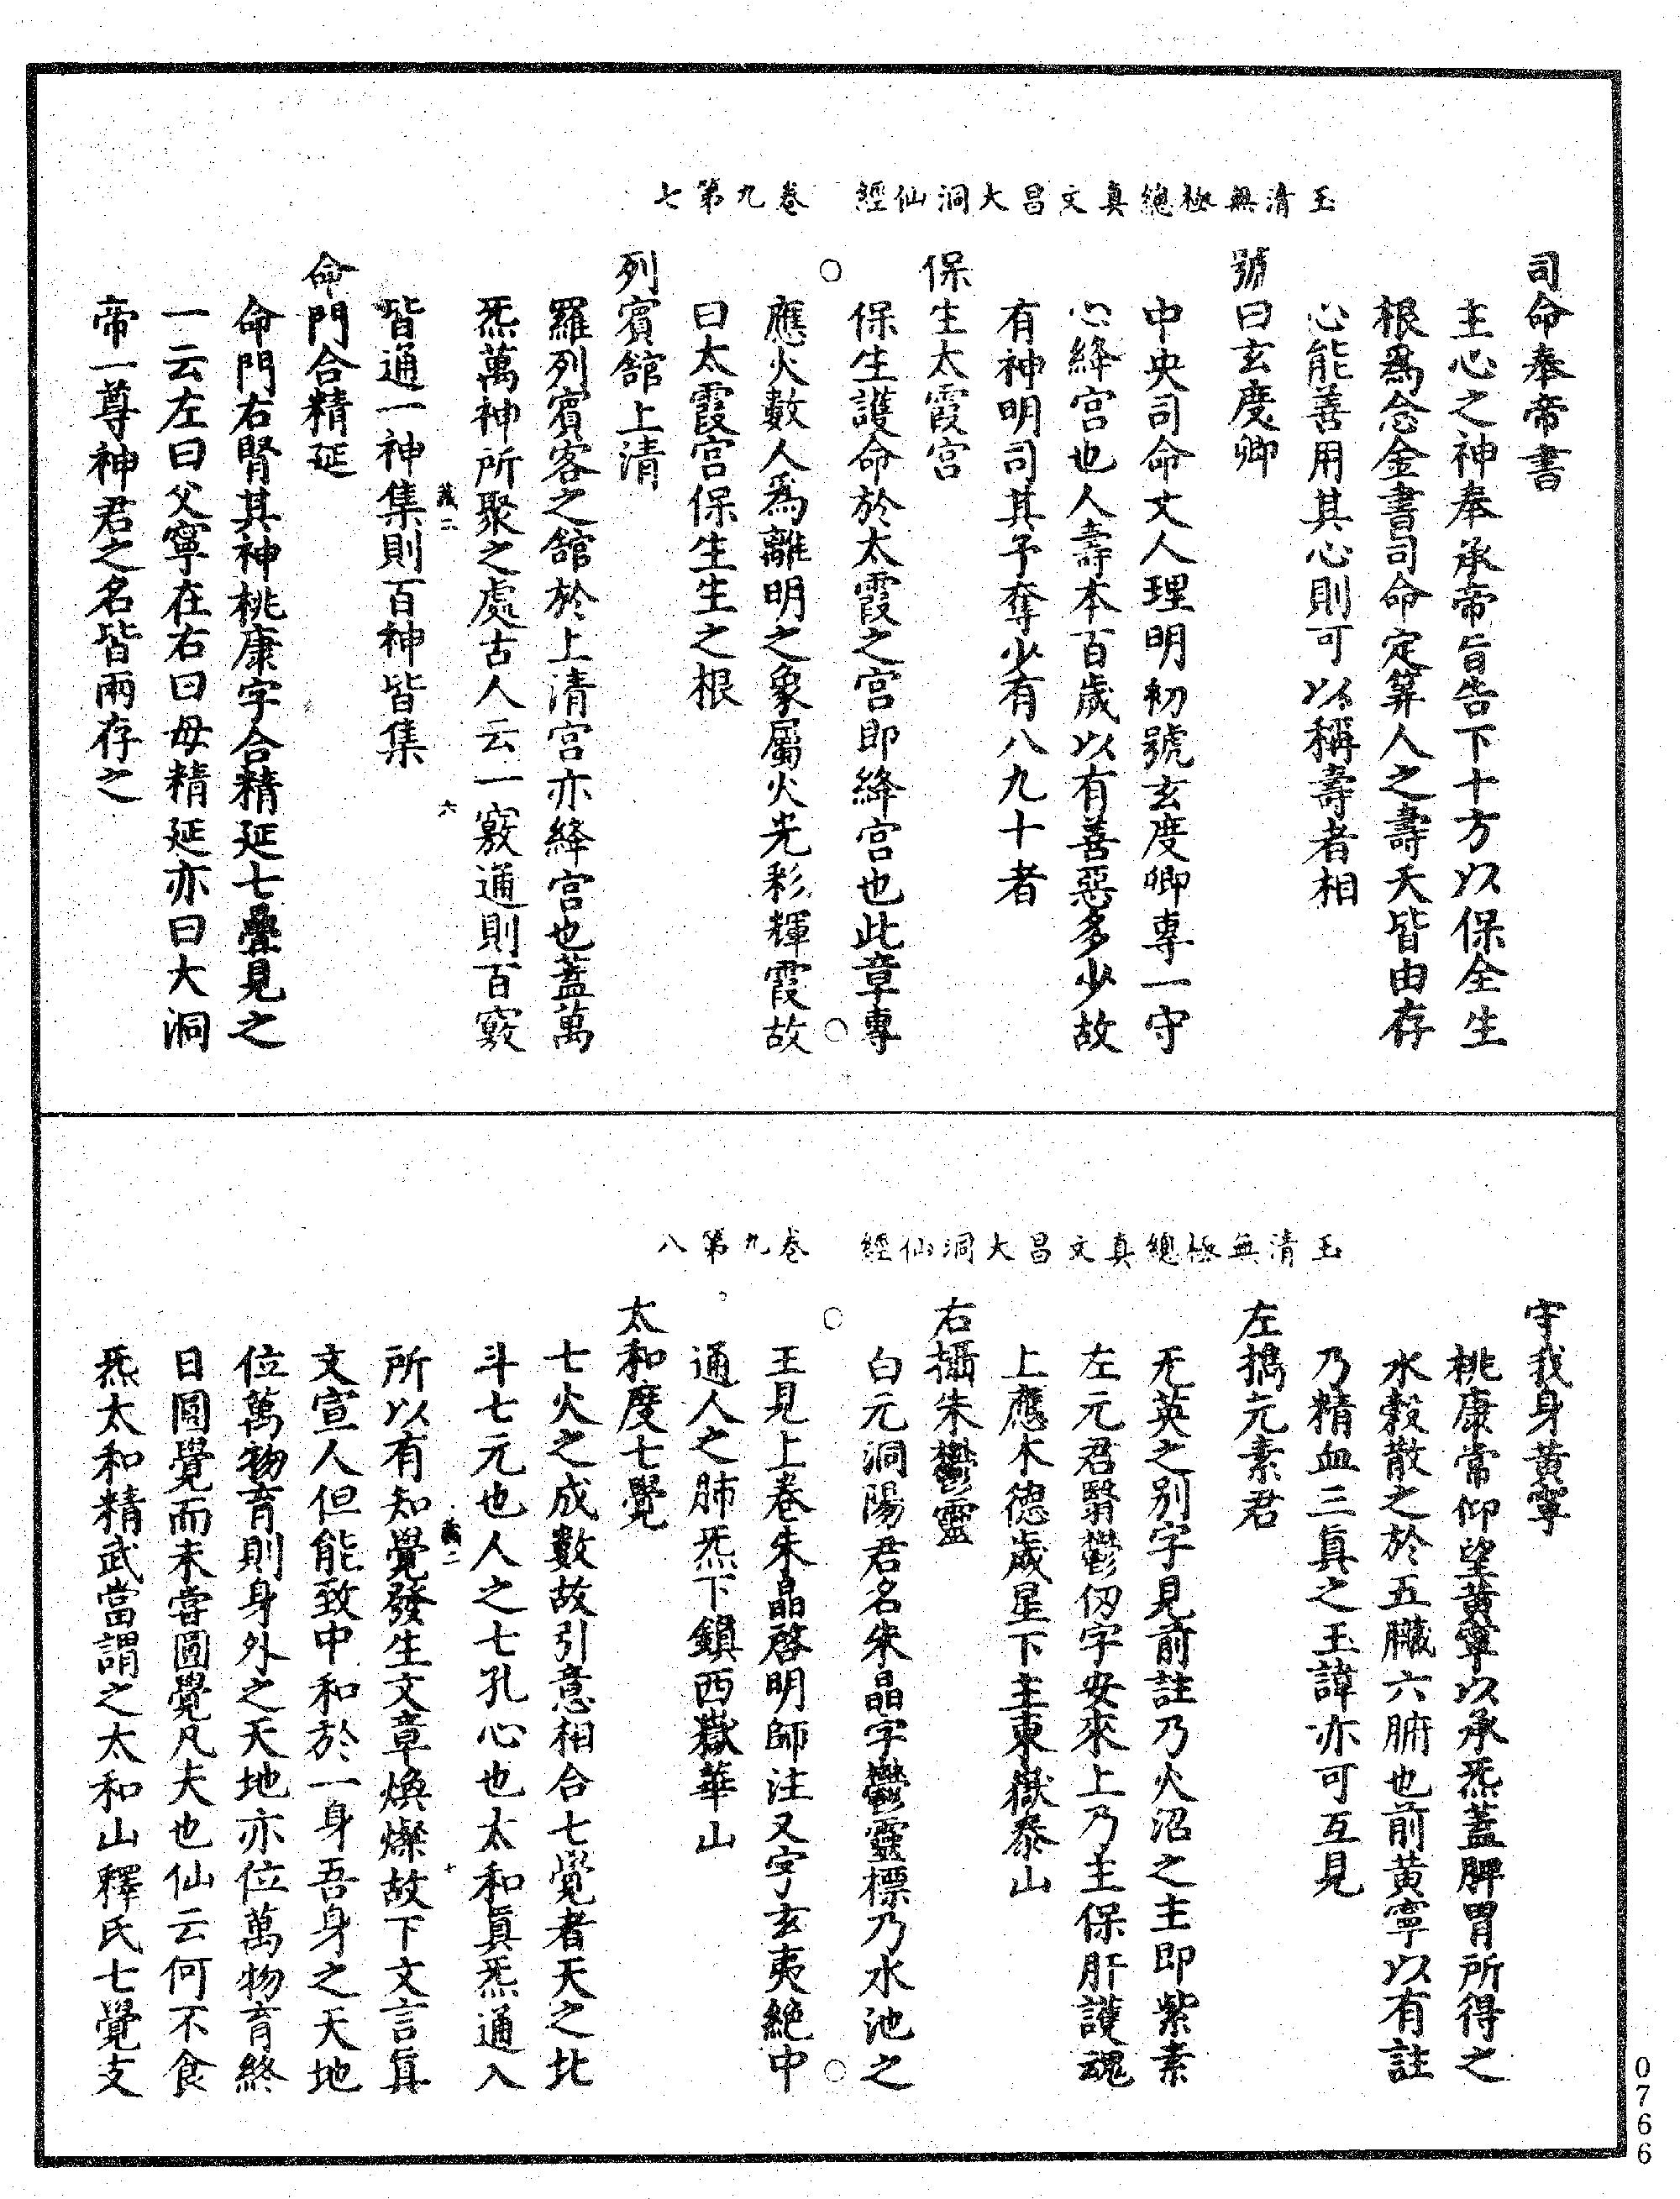 玉清無極總真文昌大洞仙經 卷九第七
司命奉帝書
主心之神奉承帝旨告下十方以保全生
根爲念金書司命定算人之壽夭皆由存
心能善用其心則可以稱壽者相
號曰玄度卿
中央司命丈人理明初號玄度卿專一守
心絳宮也人壽本百歲以有善惡多少故
有神明司其予奪少有八九十者
保生太霞宮
保生護命於太霞之宮即絳宮也此章專
應火數人爲離明之象屬火光彩輝霞故
曰太霞宮保生生之根
列賓舘上清
羅列賓客之舘於上清宮亦絳宮也蓋萬
炁萬神所聚之處古人云一竅通則百竅
義二 六
皆通一神集則百神皆集
命門合精延
命門右腎其神桃康字合精延七疊見之
一云左曰父寧在右曰母精延亦曰大洞
帝一尊神君之名皆兩存之
玉清無極總真文昌大洞仙經 卷九第八
守我身黃寧
桃康常仰望黃寧以承炁蓋脾胃所得之
水穀散之於五臟六腑也前黃寧以有註
乃精血三眞之玉諱亦可互見
左攜元素君
无英之別字見前註乃火沼之主即紫素
左元君翳鬱仭字安來上乃主保肝護魂
上應木德歲星下主東嶽泰山
右攝朱鬱靈
白元洞陽君名朱晶字鬱靈標乃水池之
王見上卷朱晶啓明師注又字玄夷絶中
通人之肺炁下鎮西嶽華山
太和度七覺
七火之成數故引意相合七覺者天之北
斗七元也人之七孔心也太和眞炁通入
義二 七
所以有知覺發生文章煥燦故下文言眞
文宣人但能致中和於一身吾身之天地
位萬物育則身外之天地亦位萬物育終
日圓覺而未嘗圓覺凡夫也仙云何不食
炁太和精武當謂之太和山釋氏七覺支
0766